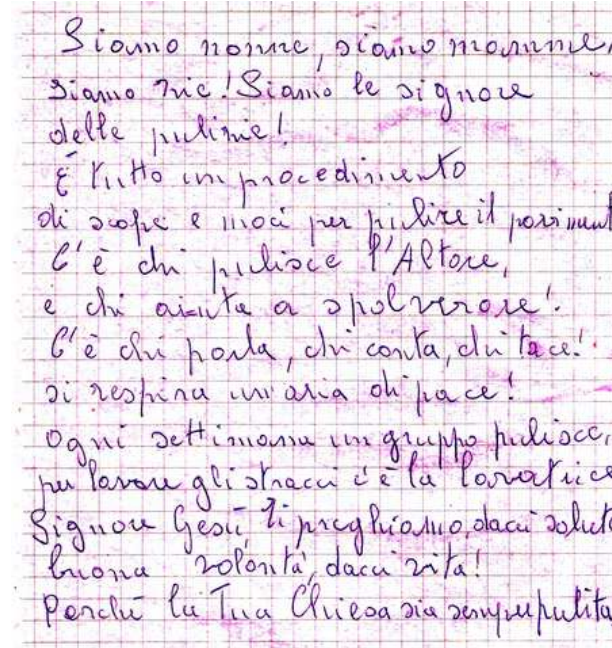 Siamo nonne, siamo mamme,
siamo zie! Siamo le signore
delle pulizie!
È tutto un procedimento
di scope e moci per pulire il paviment
C'è chi pulisce l'Altare,
e chi aiuta a spolverare!
C'è chi parla, chi canta, chi tace!
si respira un'aria di pace!
Ogni settimana un gruppo pulisce,
per lavare gli stracci c'è la lavatrice
Signore Gesù, Ti preghiamo, dacci salute
buona volontà, dacci vita!
Perché la Tua Chiesa sia sempre pulita